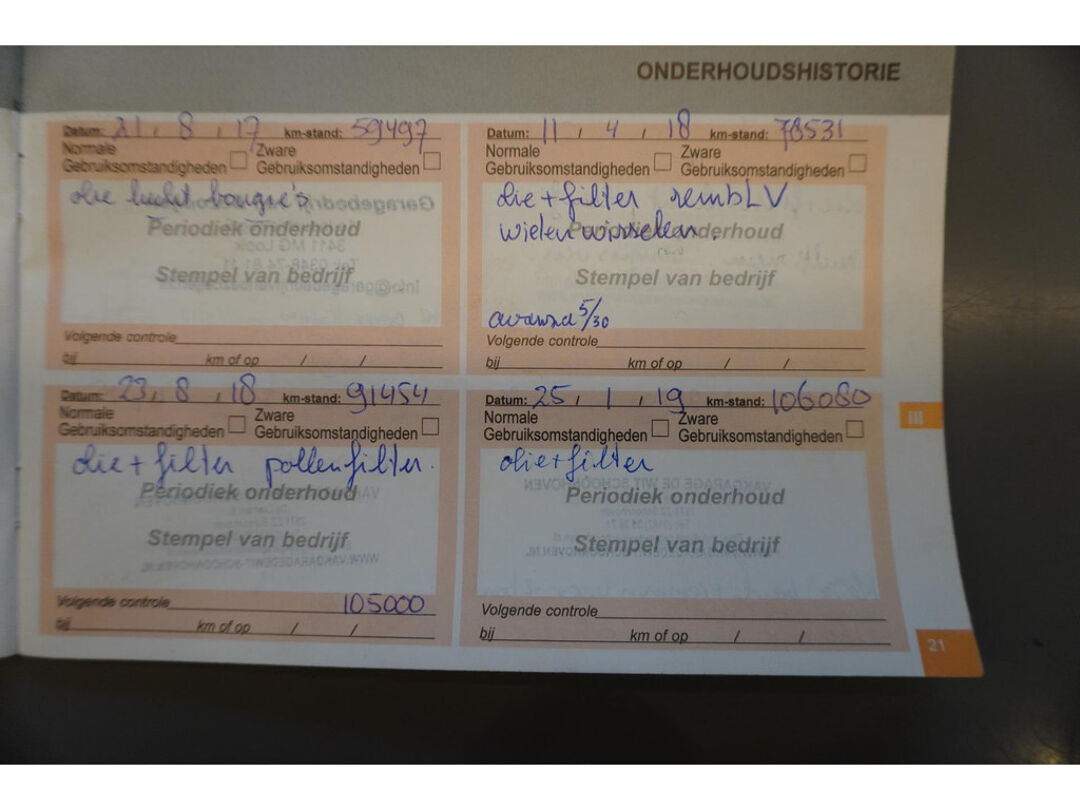 ONDERHOUDSHISTORIE
Datum: 21 / 8 / 17 km-stand: 59497
Normale Gebruiksomstandigheden Zware Gebruiksomstandigheden
olie lucht bougie's
Periodiek onderhoud
Stempel van bedrijf
Volgende controle
bij km of op / /
Datum: 11 / 4 / 18 km-stand: 78531
Normale Gebruiksomstandigheden Zware Gebruiksomstandigheden
olie + filter rembLV
wielen wisselen.
Periodiek onderhoud
Stempel van bedrijf
5/30
Volgende controle
bij km of op / /
Datum: 23 / 8 / 18 km-stand: 91454
Normale Gebruiksomstandigheden Zware Gebruiksomstandigheden
olie + filter pollenfilter.
Periodiek onderhoud
Stempel van bedrijf
Volgende controle 105000
bij km of op / /
Datum: 25 / 1 / 19 km-stand: 106080
Normale Gebruiksomstandigheden Zware Gebruiksomstandigheden
olie + filter
Periodiek onderhoud
Stempel van bedrijf
Volgende controle
bij km of op / /
III
21